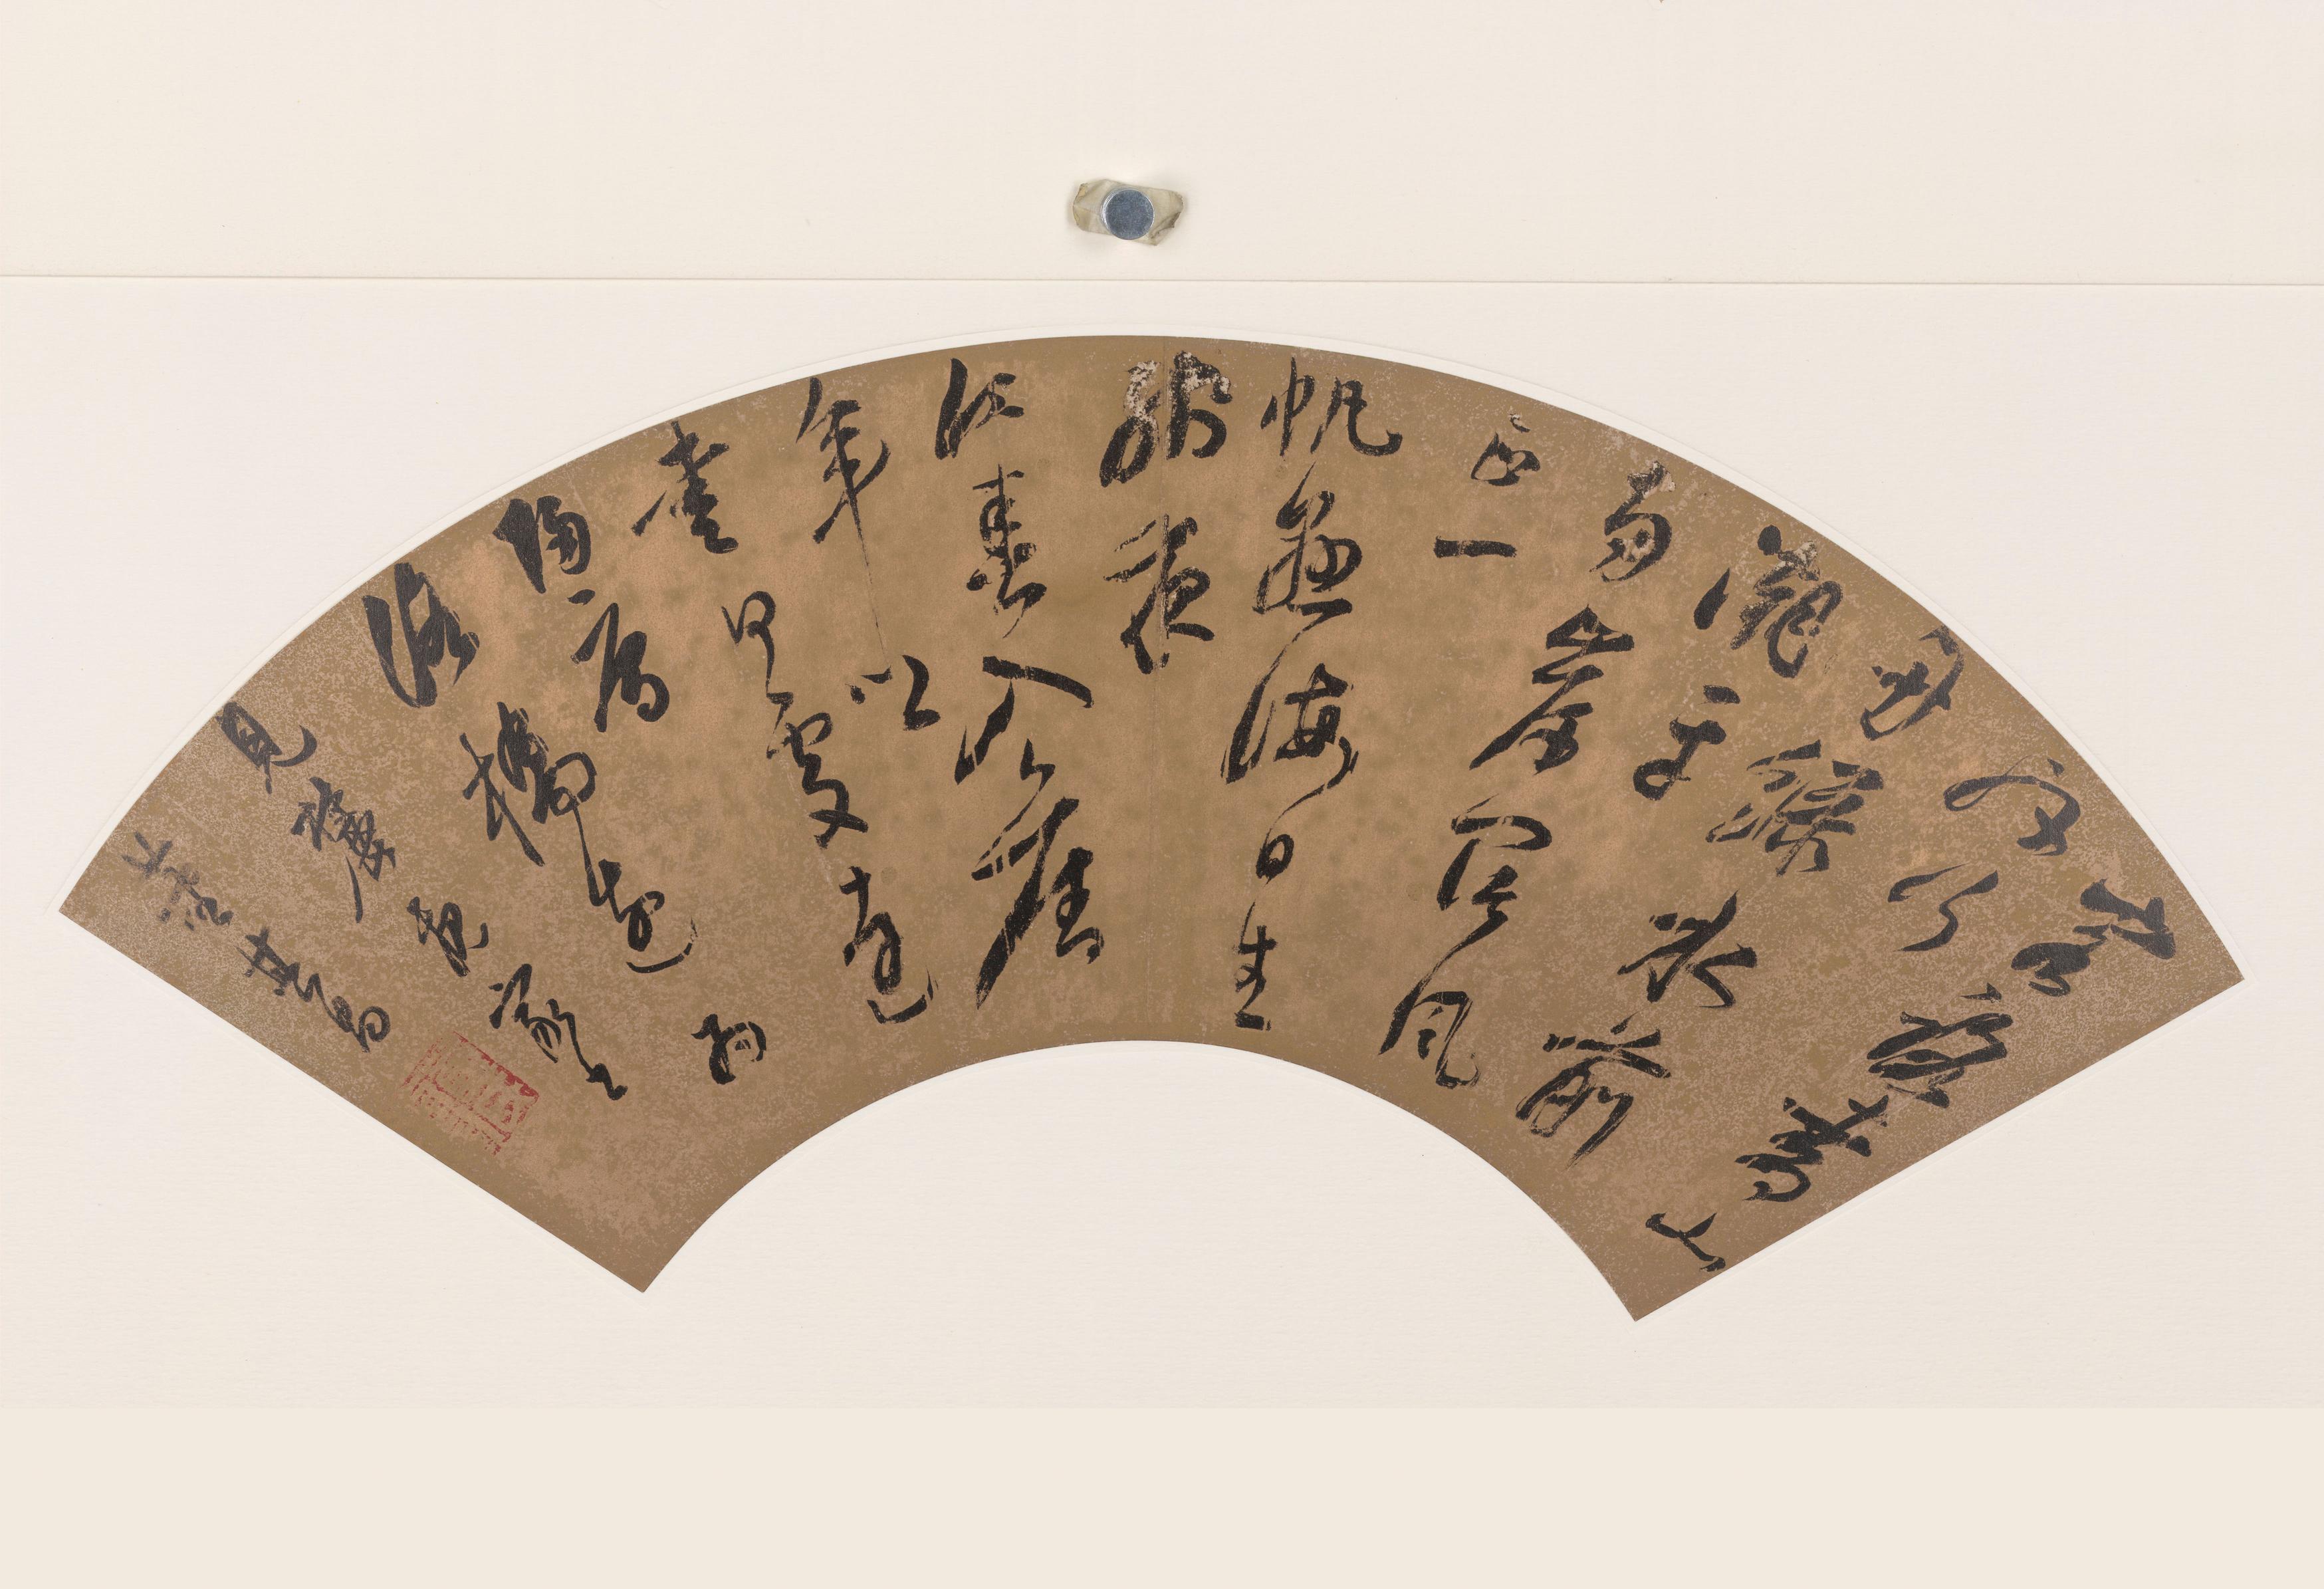 客路青山
外行
舟綠水前
潮平
兩岸闊風
正一
帆懸海日生
殘夜
江春入舊
年鄉
書何處達
歸雁
洛陽邊為
見
其昌